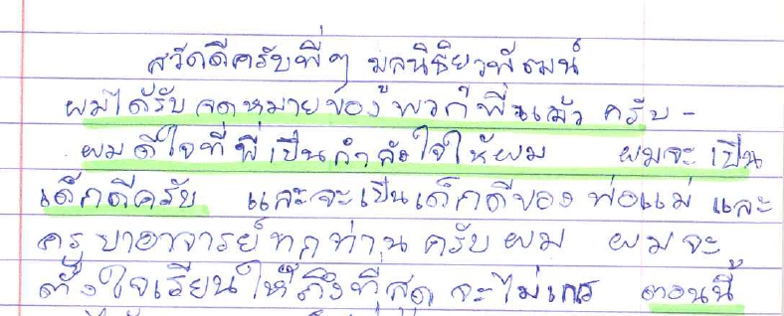 สวัดดีครับพี่ๆ มูลนิธิยุวพัฒน์
ผมได้รับจดหมายของพวกพี่แล้ว ครับ -
ผมดีใจที่พี่เป็นกำลังใจให้ผม ผมจะเป็น
เด็กดีครับ และจะเป็นเด็กดีของพ่อแม่ และ
ครูบาอาจารย์ทุกท่านครับผม ผมจะ
ตั้งใจเรียนให้ถึงที่สุด จะไม่เกเร ตอนนี้